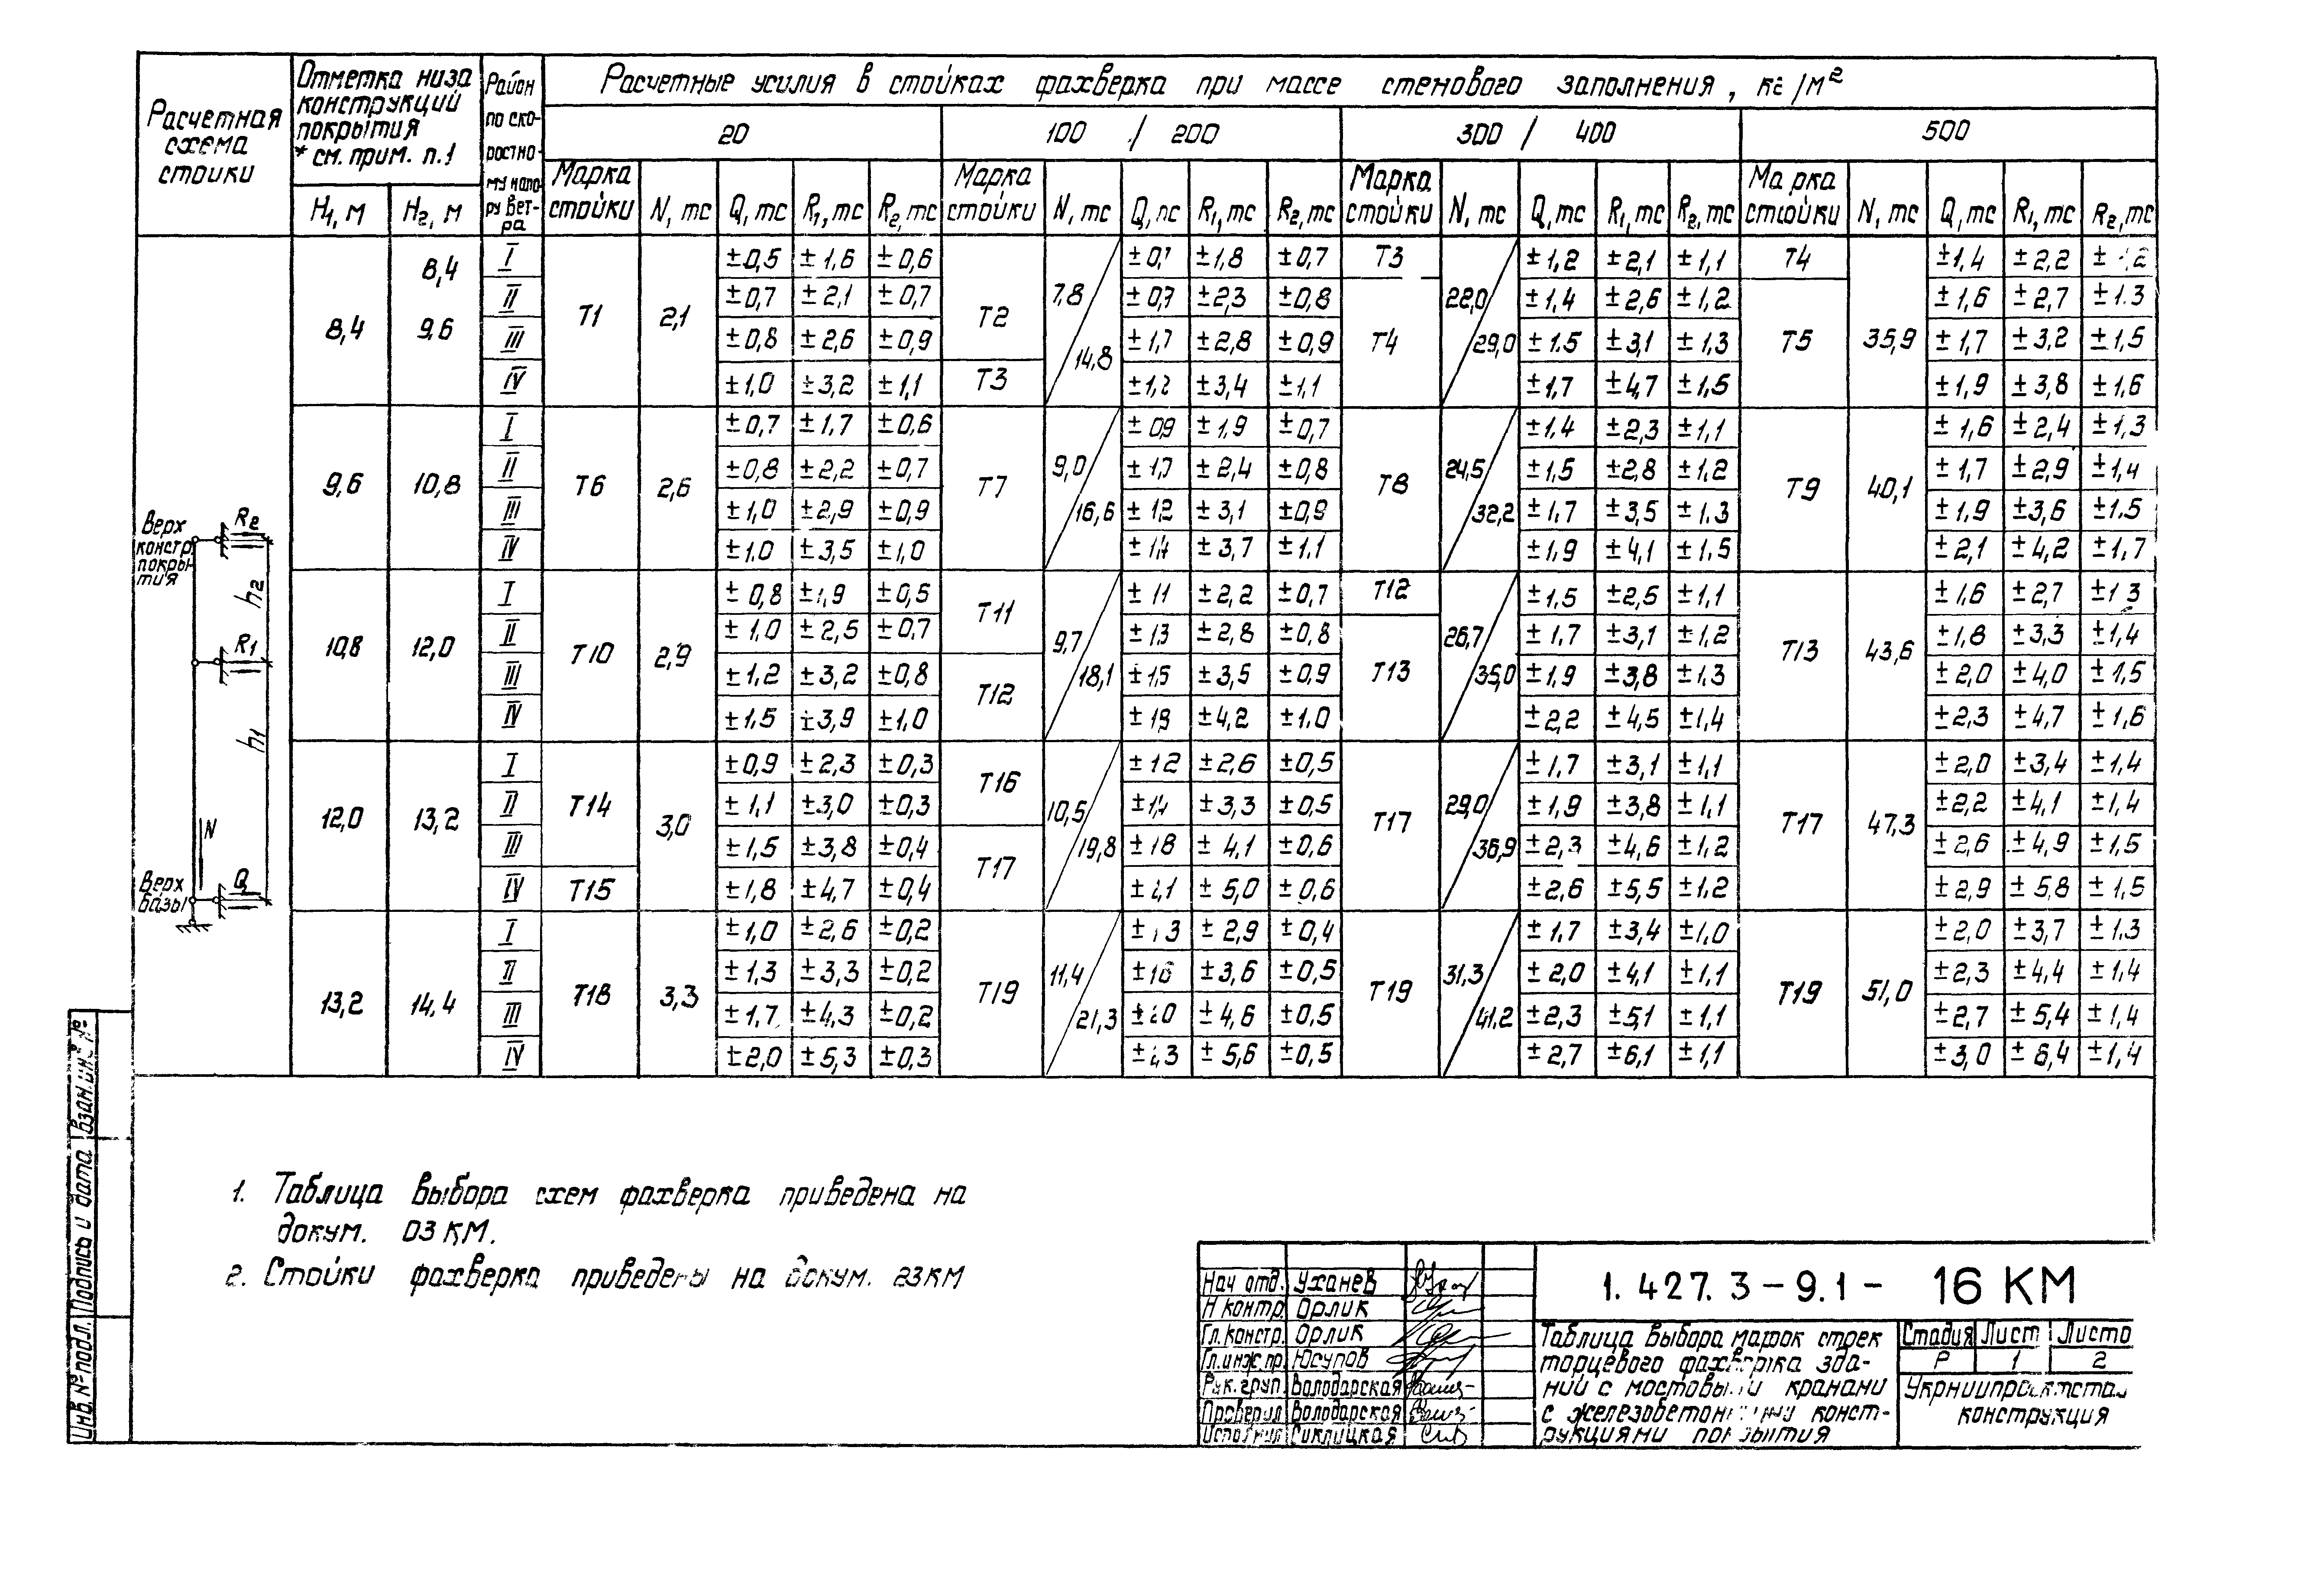 Расчетная схема стойки
Отметка низа конструкций покрытия
* см. прим. п.1
Район по скоростному напору ветра
Расчетные усилия в стойках фахверка при массе стенового заполнения, кг/м²
20 100 / 200 300 / 400 500
H1, м H2, м
Марка стойки N, тс Q, тс R1, тс R2, тс Марка стойки N, тс R1, тс R2, тс Марка стойки N, тс Q, тс R1, тс R2, тс Марка стойки N, тс Q, тс R1, тс R2, тс
8,4 8,4 9,6
T1 2,1 T2 T3 7,8/14,8 T3 T4 28,0/29,0 T4 T5 35,9
I ±0,5 ±1,6 ±0,6 ±1,8 ±0,7 ±1,2 ±2,1 ±1,1 ±1,4 ±2,2
II ±0,7 ±2,1 ±0,7 ±2,3 ±0,8 ±1,4 ±2,6 ±1,2 ±1,6 ±2,7 ±1.3
III ±0,8 ±2,6 ±0,9 ±2,8 ±0,9 ±1.5 ±3,1 ±1,3 ±1,7 ±3,2 ±1,5
IV ±1,0 ±3,2 ±1,1 ±1,2 ±3,4 ±1,1 ±1,7 ±4,7 ±1,5 ±1,9 ±3,8 ±1,6
9,6 10,8
T6 2,6 T7 9,0/16,6 T8 24,5/32,2 T9 40,1
I ±0,7 ±1,7 ±0,6 ±09 ±1,9 ±0,7 ±1,4 ±2,3 ±1,1 ±1,6 ±2,4 ±1,3
II ±0,8 ±2,2 ±0,7 ±2,4 ±0,8 ±1,5 ±2,8 ±1,2 ±1,7 ±2,9 ±1,4
III ±1,0 ±2,9 ±0,9 ±12 ±3,1 ±0,9 ±1,7 ±3,5 ±1.3 ±1,9 ±3,6 ±1.5
IV ±1.0 ±3,5 ±1,0 ±1,4 ±3,7 ±1.1 ±1,9 ±4,1 ±1,5 ±2,1 ±4,2 ±1,7
10,8 12,0
T10 2,9 T11 T12 9,7/18,1 T12 T13 26,7/35,0 T13 43,6
I ±0,8 ±1,9 ±0,5 ±11 ±2,2 ±0,7 ±1,5 ±2,5 ±1,1 ±1,6 ±2,7 ±1 3
II ±1,0 ±2,5 ±0,7 ±13 ±2,8 ±0,8 ±1,7 ±3,1 ±1,2 ±1,8 ±3,3 ±1,4
III ±1,2 ±3,2 ±0,8 ±1,5 ±3,5 ±0,9 ±1,9 ±3,8 ±1.3 ±2,0 ±4,0 ±1,5
IV ±1,5 ±3,9 ±1,0 ±4,2 ±1.0 ±2,2 ±4,5 ±1,4 ±2,3 ±4,7 ±1,6
12,0 13,2
T14 T15 3,0 T16 T17 10,5/19,8 T17 29,0/36,9 T17 47,3
I ±0,9 ±2,3 ±0,3 ±12 ±2,6 ±0,5 ±1,7 ±3,1 ±1,1 ±2,0 ±3,4 ±1,4
II ±1,1 ±3,0 ±0,3 ±1,4 ±3,3 ±0,5 ±1,9 ±3,8 ±1,1 ±2,2 ±4,1 ±1,4
III ±1,5 ±3,8 ±0,4 ±18 ±4,1 ±0,6 ±2,3 ±4,6 ±1,2 ±2,6 ±4,9 ±1,5
IV ±1,8 ±4,7 ±0,4 ±5,0 ±0,6 ±2,6 ±5,5 ±1,2 ±2,9 ±5,8 ±1,5
13,2 14,4
T18 3,3 T19 11,4/21,3 T19 31,3/41,2 T19 51,0
I ±1,0 ±2,6 ±0,2 ±2,9 ±0,4 ±1,7 ±3,4 ±1,0 ±2,0 ±3,7 ±1.3
II ±1,3 ±3,3 ±0,2 ±16 ±3,6 ±0,5 ±2,0 ±4,1 ±1,1 ±2,3 ±4,4 ±1,4
III ±1,7 ±4,3 ±0,2 ±4,6 ±0,5 ±2,3 ±5,1 ±1,1 ±2,7 ±5,4 ±1,4
IV ±2,0 ±5,3 ±0,3 ±5,6 ±0,5 ±2,7 ±6,1 ±1,1 ±3,0 ±6,4 ±1,4
Верх констр. покрытия
R2
h2
R1
h1
N
Q
Верх базы
1. Таблица выбора схем фахверка приведена на
докум. 03 КМ.
2. Стойки фахверка приведены на докум. 23КМ
Инв. № подл. Подпись и дата Взам.инв. №
Нач отд. Уханев
Н контр. Орлик
Гл. констр. Орлик
Гл.инж.пр. Юсупов
Рук.груп. Володарская
Проверил Володарская
Исполнил Сиклицкая
1. 427. 3 – 9. 1 – 16 КМ
Таблица выбора марок стоек
торцевого фахверка зда-
ний с мостовыми кранами
с железобетонными конст-
рукциями покрытия
Стадия Лист Листо
Р 1 2
Укрниипроектстал
конструкция